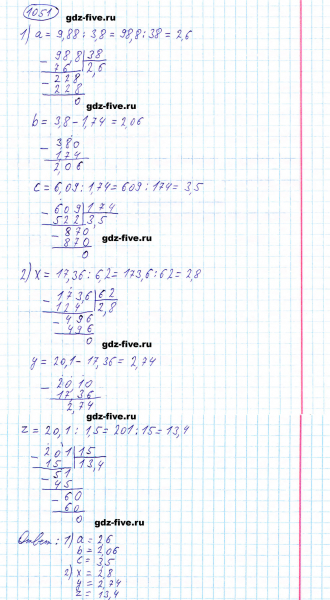 1051
gdz-five.ru
1) a = 9,88 : 3,8 = 98,8 : 38 = 2,6
- 98,8 | 38
76 | 2,6
- 228
228
0
gdz-five.ru
b = 3,8 - 1,74 = 2,06
- 3,80
1,74
2,06
gdz-five.ru
c = 6,09 : 1,74 = 609 : 174 = 3,5
- 609 | 174
522 | 3,5
- 870
870
0
gdz-five.ru
2) x = 17,36 : 6,2 = 173,6 : 62 = 2,8
- 173,6 | 62
124 | 2,8
- 496
496
0
gdz-five.ru
y = 20,1 - 17,36 = 2,74
- 20,10
17,36
2,74
gdz-five.ru
z = 20,1 : 1,5 = 201 : 15 = 13,4
- 201 | 15
15 | 13,4
- 51
45
- 60
60
0
gdz-five.ru
Ответ: 1) a = 2,6
b = 2,06
c = 3,5
2) x = 2,8
y = 2,74
z = 13,4